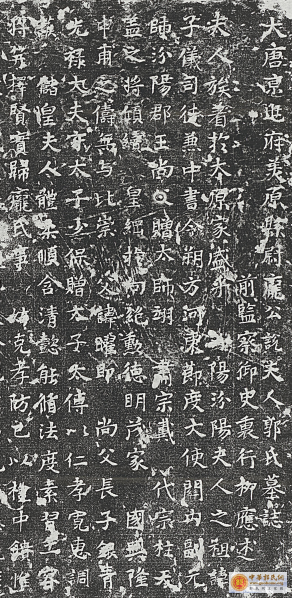 大唐京兆府美原縣尉龐公故夫人郭氏墓誌
前監察御史裏行柳應述
夫人族著於太原家盛於汾陽汾陽夫人之祖諱
子儀司徒兼中書令朔方河東節度大使關內副元
帥汾陽郡王尚父贈太師翊 肅宗戴 代宗柱天
蓋之將傾續 皇綱於向絕勳德明茂家 國興隆
申甫之儔無与比崇 父諱曜即 尚父長子銀青
光禄大夫太子少保贈太子太傅以仁孝寬惠調
護儲皇夫人體柔順含清懿能脩法度素習工容
將笄擇賢賓歸龐氏事 姑克孝防己以禮中饋惟
中华郭氏网